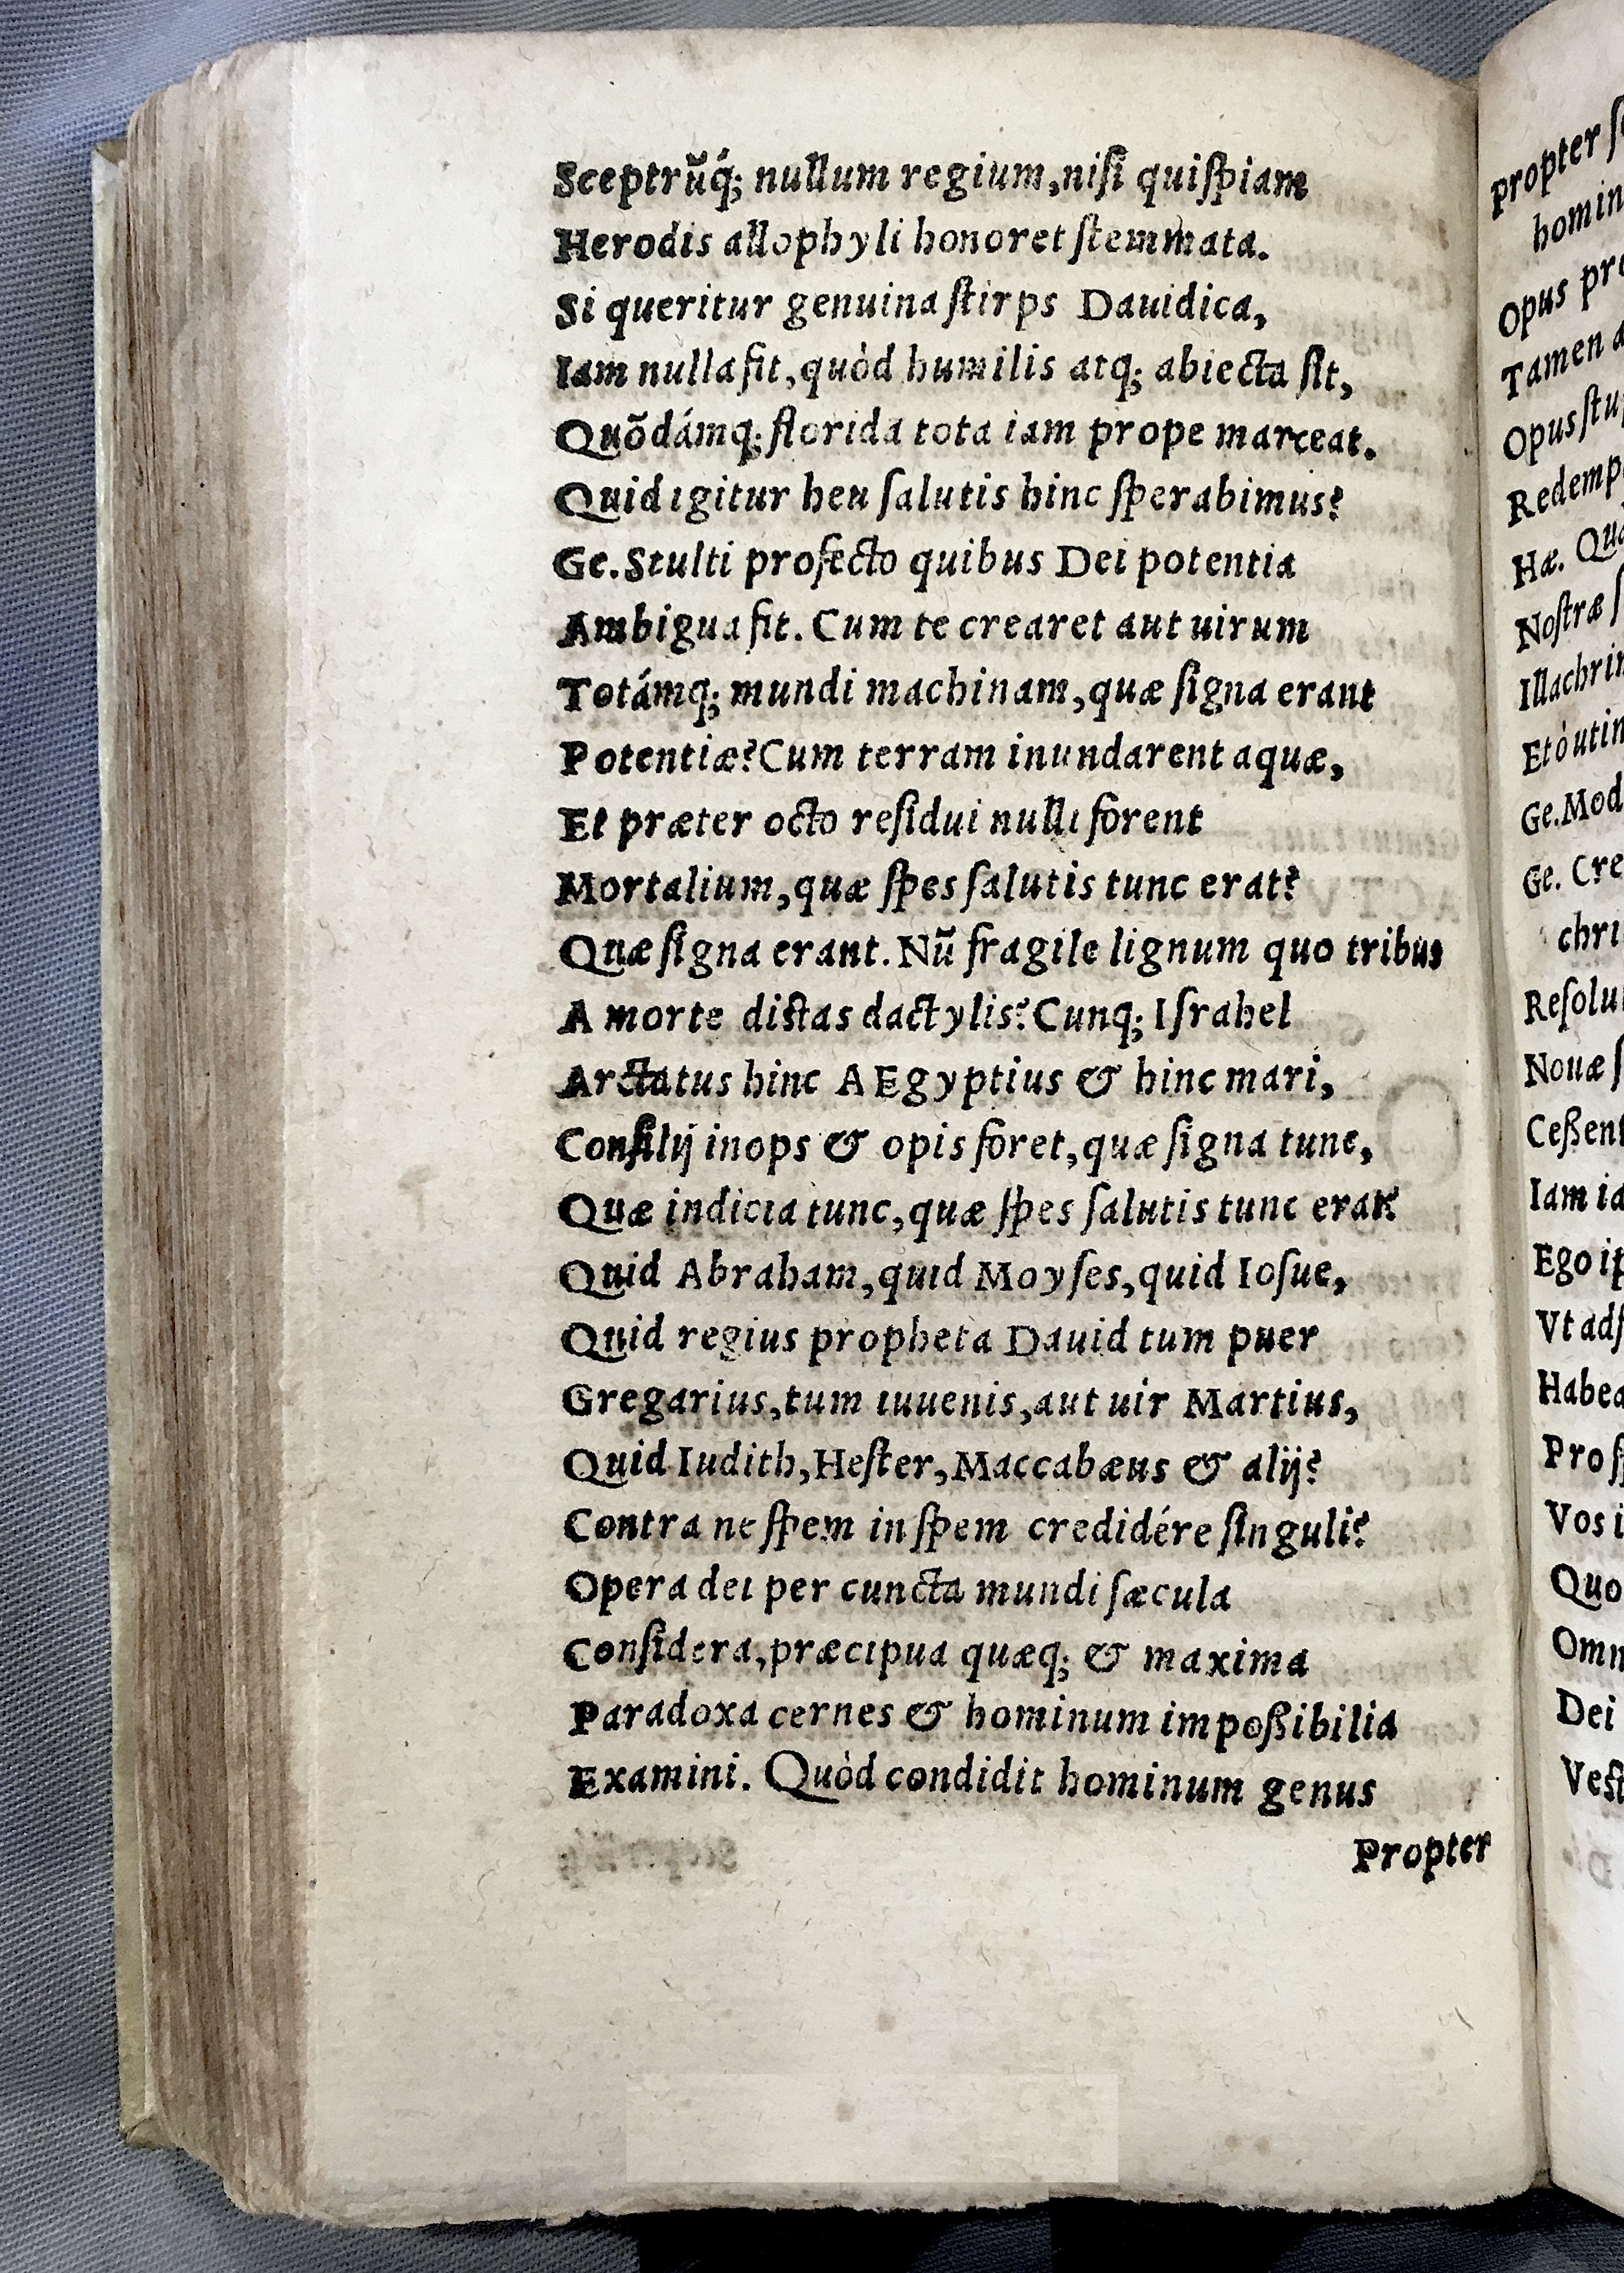 Sceptrũq́; nullum regium,niſi quiſpiam
Herodis allophyli honoret ſtemmata.
Si queritur genuina ſtirps Dauidica,
Iam nulla ſit,quòd humilis atq; abiecta ſit,
Quõdámq; florida tota iam prope marceat.
Quid igitur heu ſalutis hinc ſperabimus?
Ge.Stulti profecto quibus Dei potentia
Ambigua ſit. Cum te crearet aut uirum
Totámq; mundi machinam,quæ ſigna erant
Potentiæ?Cum terram inundarent aquæ,
Et præter octo reſidui nulli forent
Mortalium,quæ ſpes ſalutis tunc erat?
Quæ ſigna erant. Nũ fragile lignum quo tribus
A morte diſtas dactylis?Cunq; Iſrahel
Arctatus hinc AEgyptius & hinc mari,
Conſilij inops & opis foret,quæ ſigna tunc,
Quæ indicia tunc,quæ ſpes ſalutis tunc erat?
Quid Abraham,quid Moyſes,quid Ioſue,
Quid regius propheta Dauid tum puer
Gregarius,tum iuuenis,aut uir Martius,
Quid Iudith,Heſter,Maccabæus & alij?
Contra ne ſpem in ſpem credidére ſinguli?
Opera dei per cuncta mundi ſæcula
Conſidera,præcipua quæq; & maxima
Paradoxa cernes & hominum impoßibilia
Examini. Quòd condidit hominum genus
Propter
propter
Opus
Tamen
Opus
Hæ.
Noſtræ
Et ò
Ge.
Ge.
Nouæ
Iam
Ego
Vt
Vos
Dei